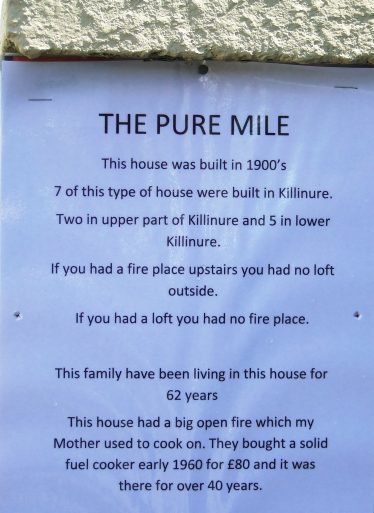 THE PURE MILE
This house was built in 1900's
7 of this type of house were built in Killinure.
Two in upper part of Killinure and 5 in lower
Killinure.
If you had a fire place upstairs you had no loft
outside.
If you had a loft you had no fire place.
This family have been living in this house for
62 years
This house had a big open fire which my
Mother used to cook on. They bought a solid
fuel cooker early 1960 for £80 and it was
there for over 40 years.